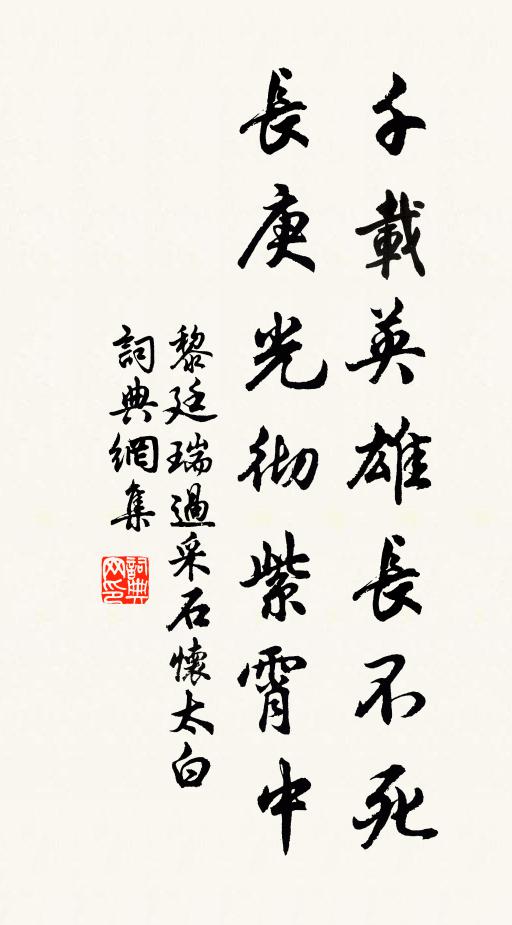 千載英雄長不死
長庚光彻紫霄中
黎廷瑞過采石懷太白
詞典網集
詞典网印